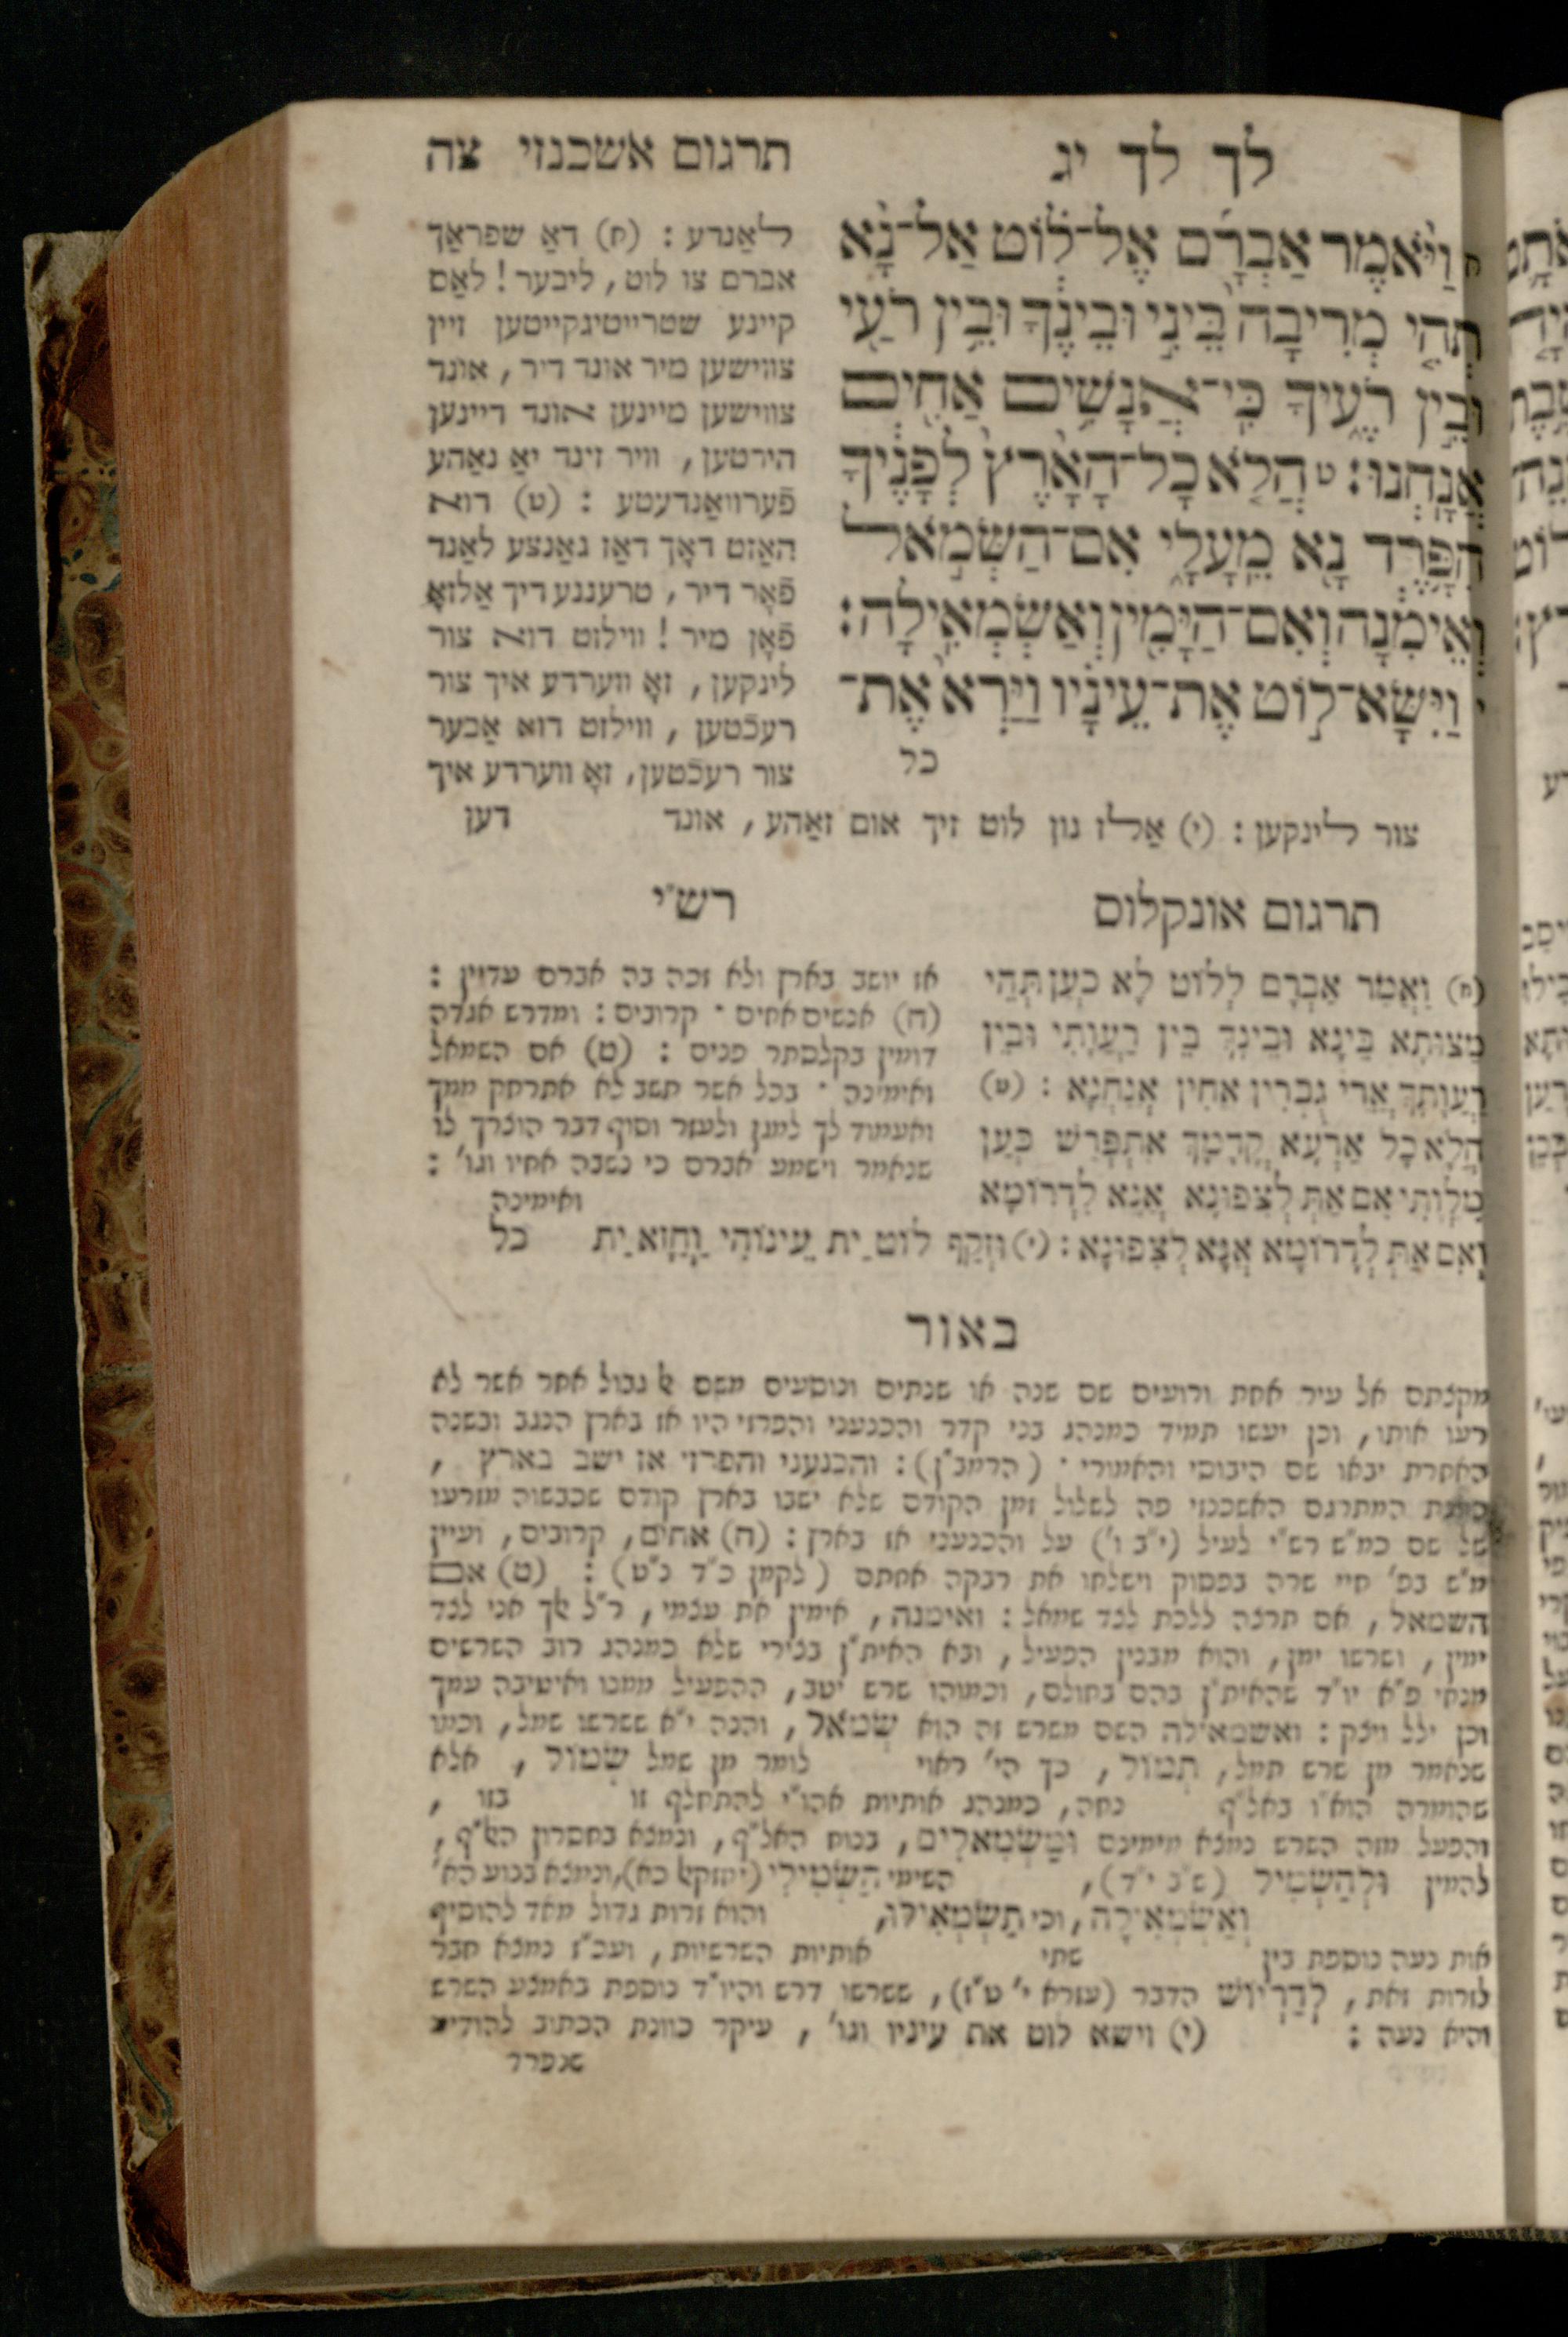 לך לך יג
תרגום אשכנזי צה
ח וַיֹּאמֶר אַבְרָם אֶל־לוֹט אַל־נָא
תְהִי מְרִיבָה בֵּינִי וּבֵינֶךָ וּבֵין רֹעַי
וּבֵין רֹעֶיךָ כִּי־אֲנָשִׁים אַחִים
אֲנָחְנוּ: ט הֲלֹא כָל־הָאָרֶץ לְפָנֶיךָ
הִפָּרֶד נָא מֵעָלָי אִם־הַשְּׂמֹאל
וְאֵימִנָה וְאִם־הַיָּמִין וְאַשְׂמְאִילָה:
וַיִּשָּׂא־לוֹט אֶת־עֵינָיו וַיַּרְא אֶת־
כל
לאַנדע: (ח) דאַ שפראַך
אברם צו לוט, ליבער! לאַס
קיינע שטרייטיגקייטען זיין
צווישען מיר אונד דיר, אונד
צווישען מיינען אונד דיינען
הירטען, וויר זינד יאַ נאַהע
פֿערוואַנדעטע: (ט) דוא
האַזט דאָך דאַז גאַנצע לאַנד
פֿאָר דיר, טרעננע דיך אַלזאָ
פֿאָן מיר! ווילזט דוא צור
לינקען, זאָ ווערדע איך צור
רעכֿטען, ווילזט דוא אַבער
צור רעכֿטען, זאָ ווערדע איך
צור לינקען: (י) אַלז נון לוט זיך אום זאַהע, אונד דען
תרגום אונקלוס
(ח) וַאֲמַר אַבְרָם לְלוֹט לָא כְעַן תְּהֵי
מַצּוּתָא בֵּינָא וּבֵינָךְ בֵּין רַעֲוָתִי וּבֵין
רַעֲוָתָךְ אֲרֵי גֻבְרִין אַחִין אֲנַחְנָא: (ט)
הֲלָא כָל אַרְעָא קֳדָמָךְ אִתְפְּרֵשׁ כְּעַן
מִלְּוָתִי אִם אַתְּ לְצִפּוּנָא אֲנָא לִדְרוֹמָא
וְאִם אַתְּ לִדְרוֹמָא אֲנָא לְצִפּוּנָא: (י) וּזְקַף לוֹט יַת עֵינוֹהִי וַחֲזָא יַת כל
רש״י
אז יושב בארץ ולא זכה בה אברם עדיין:
(ח) אנשים אחים · קרובים: ומדרש אגדה
דומין בקלסתר פנים: (ט) אם השמאל
ואימינה · בכל אשר תשב לא אתרחק ממך
ואעמוד לך למגן ולעזר וסוף דבר הוצרך לו
שנאמר וישמע אברם כי נשבה אחיו וגו׳:
ואימינה
באור
מקנתם אל עיר אחת ורועים שם שנה או שנתים ונוסעים משם אל גבול אחר אשר לא
רעו אותו, וכן יעשו תמיד כמנהג בני קדר והכנעני והפרזי היו אז בארץ הנגב ובשנה
האחרת יבאו שם היבוסי והאמורי · (הרמב״ן): והכנעני והפרזי אז ישב בארץ,
כוונת המתרגם האשכנזי פה לשלול זמן הקודם שלא ישבו בארץ קודם שכבשוה מזרעו
של שם כמ״ש רש״י לעיל (י״ב ו׳) על והכנעני אז בארץ: (ח) אחים, קרובים, ועיין
מ״ש בפ׳ חיי שרה בפסוק וישלחו את רבקה אחתם (לקמן כ״ד נ״ט): (ט) אם
השמאל, אם תרצה ללכת לצד שמאל: ואימנה, אימין את עצמי, ר״ל אלך אני לצד
ימין, ושרשו ימן, והוא מבנין הפעיל, ובא האית״ן בצירי שלא כמנהג רוב השרשים
מנחי פ״א יו״ד שהאית״ן בהם בחולם, וכמוהו שרש יטב, ההפעיל ממנו ואיטיבה עמך
וכן ילל וינק: ואשמאילה השם משרש זה הוא שְׂמֹאל, והנה י״א ששרשו שמל, וכמו
שנאמר מן שרש תמל, תְּמוֹל, כך הי׳ ראוי לומר מן שמל שְׂמוֹל, אלא
שהומרה הוא״ו באל״ף נחה, כמנהג אותיות אהו״י להתחלף זו בזו,
והפעל מזה השרש נמצא מימינם וּמַשְׂמִאלִים, בנוח האל״ף, ונמצא בחסרון האל״ף,
להמין וּלְהַשְׂמִיל (ש״ב י״ד), השימי הַשְׂמִילִי (יחזקאל כא), ונמצא בנוע הא׳
וְאַשְׂמְאִילָה, וכי תַשְׂמְאִילוּ, והוא זרות גדול מאד להוסיף
אות נעה נוספת בין שתי אותיות השרשיות, ועכ״ז נמצא חבר
לזרות זאת, לְדַרְיוֹשׁ הדבר (עזרא י׳ ט״ז), ששרשו דרש והיו״ד נוספת באמצע השרש
והיא נעה: (י) וישא לוט את עיניו וגו׳, עיקר כוונת הכתוב להודיע
שנפרד